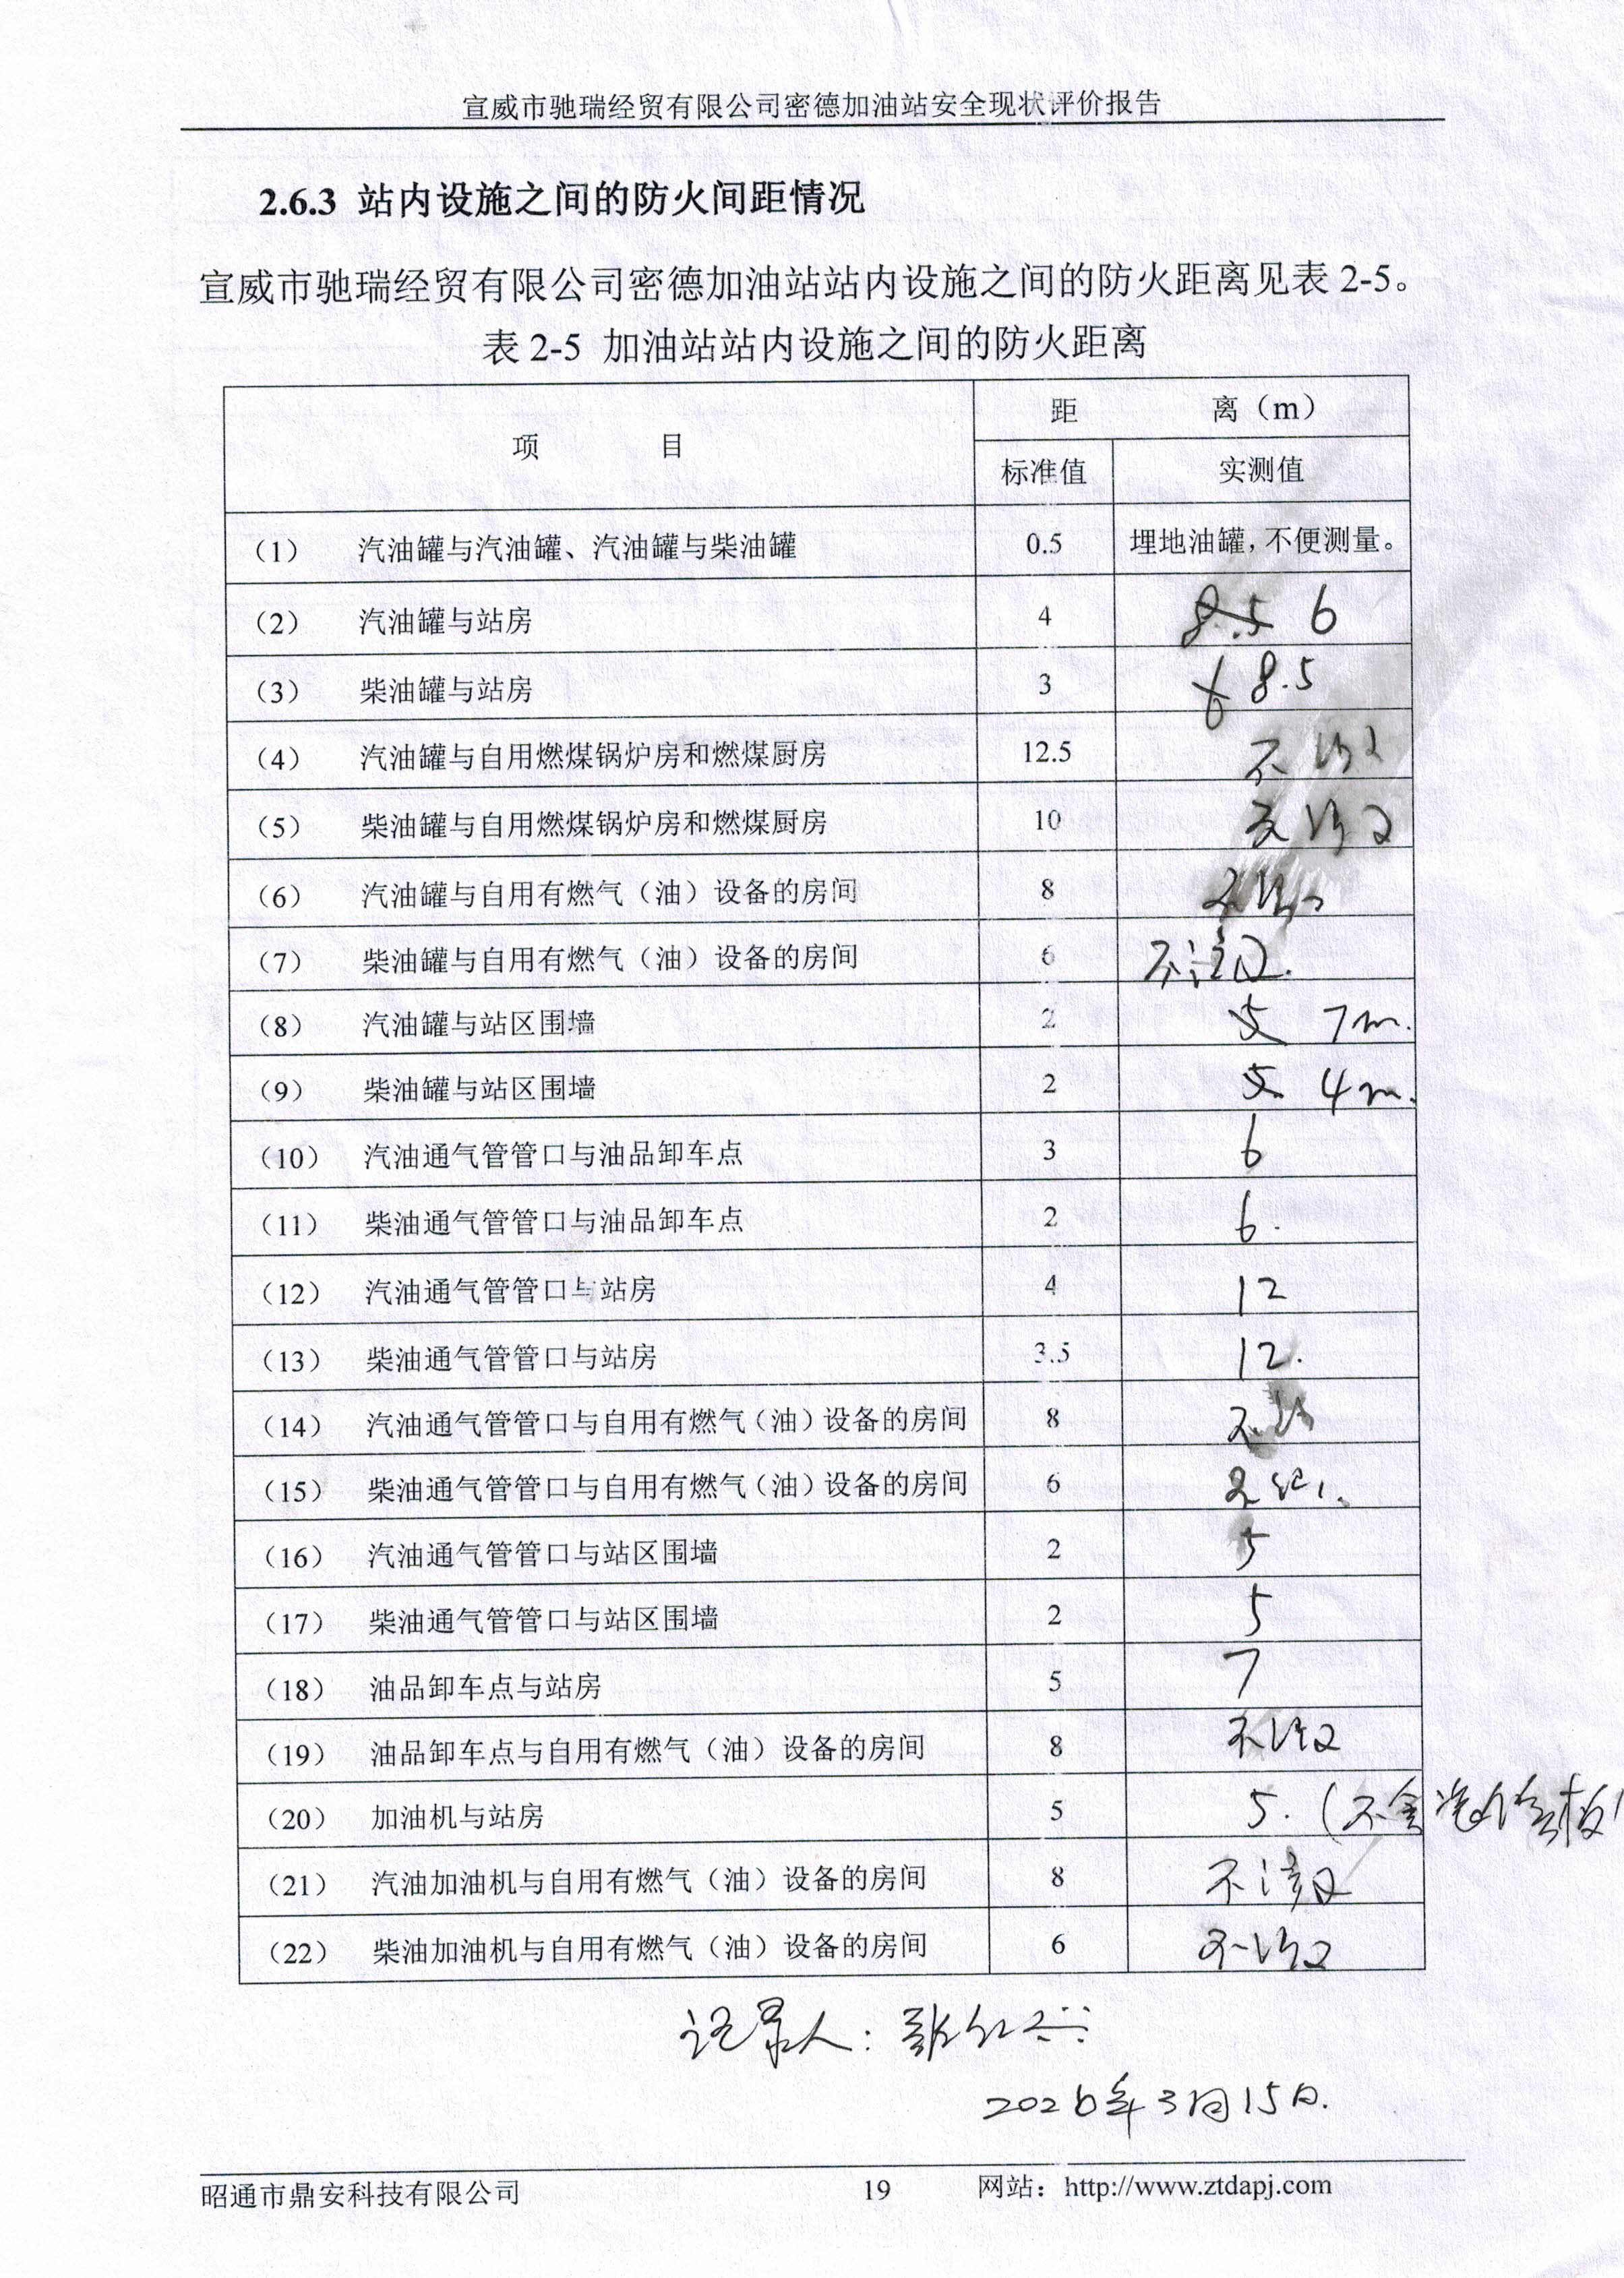 宣威市驰瑞经贸有限公司密德加油站安全现状评价报告
2.6.3 站内设施之间的防火间距情况
宣威市驰瑞经贸有限公司密德加油站站内设施之间的防火距离见表 2-5。
表 2-5 加油站站内设施之间的防火距离
项 目 距 离（m）
标准值 实测值
（1） 汽油罐与汽油罐、汽油罐与柴油罐 0.5 埋地油罐，不便测量。
（2） 汽油罐与站房 4 8.5 6
（3） 柴油罐与站房 3 6 8.5
（4） 汽油罐与自用燃煤锅炉房和燃煤厨房 12.5 不设
（5） 柴油罐与自用燃煤锅炉房和燃煤厨房 10
（6） 汽油罐与自用有燃气（油）设备的房间 8
（7） 柴油罐与自用有燃气（油）设备的房间 6
（8） 汽油罐与站区围墙 2 5 7m.
（9） 柴油罐与站区围墙 2 5 4m.
（10） 汽油通气管管口与油品卸车点 3 6
（11） 柴油通气管管口与油品卸车点 2 6.
（12） 汽油通气管管口与站房 4 12
（13） 柴油通气管管口与站房 3.5 12.
（14） 汽油通气管管口与自用有燃气（油）设备的房间 8
（15） 柴油通气管管口与自用有燃气（油）设备的房间 6
（16） 汽油通气管管口与站区围墙 2 5
（17） 柴油通气管管口与站区围墙 2 5
（18） 油品卸车点与站房 5 7
（19） 油品卸车点与自用有燃气（油）设备的房间 8
（20） 加油机与站房 5 5.（不含
（21） 汽油加油机与自用有燃气（油）设备的房间 8
（22） 柴油加油机与自用有燃气（油）设备的房间 6
记录人：张红
2026年3月15日.
昭通市鼎安科技有限公司 19 网站：http://www.ztdapj.com